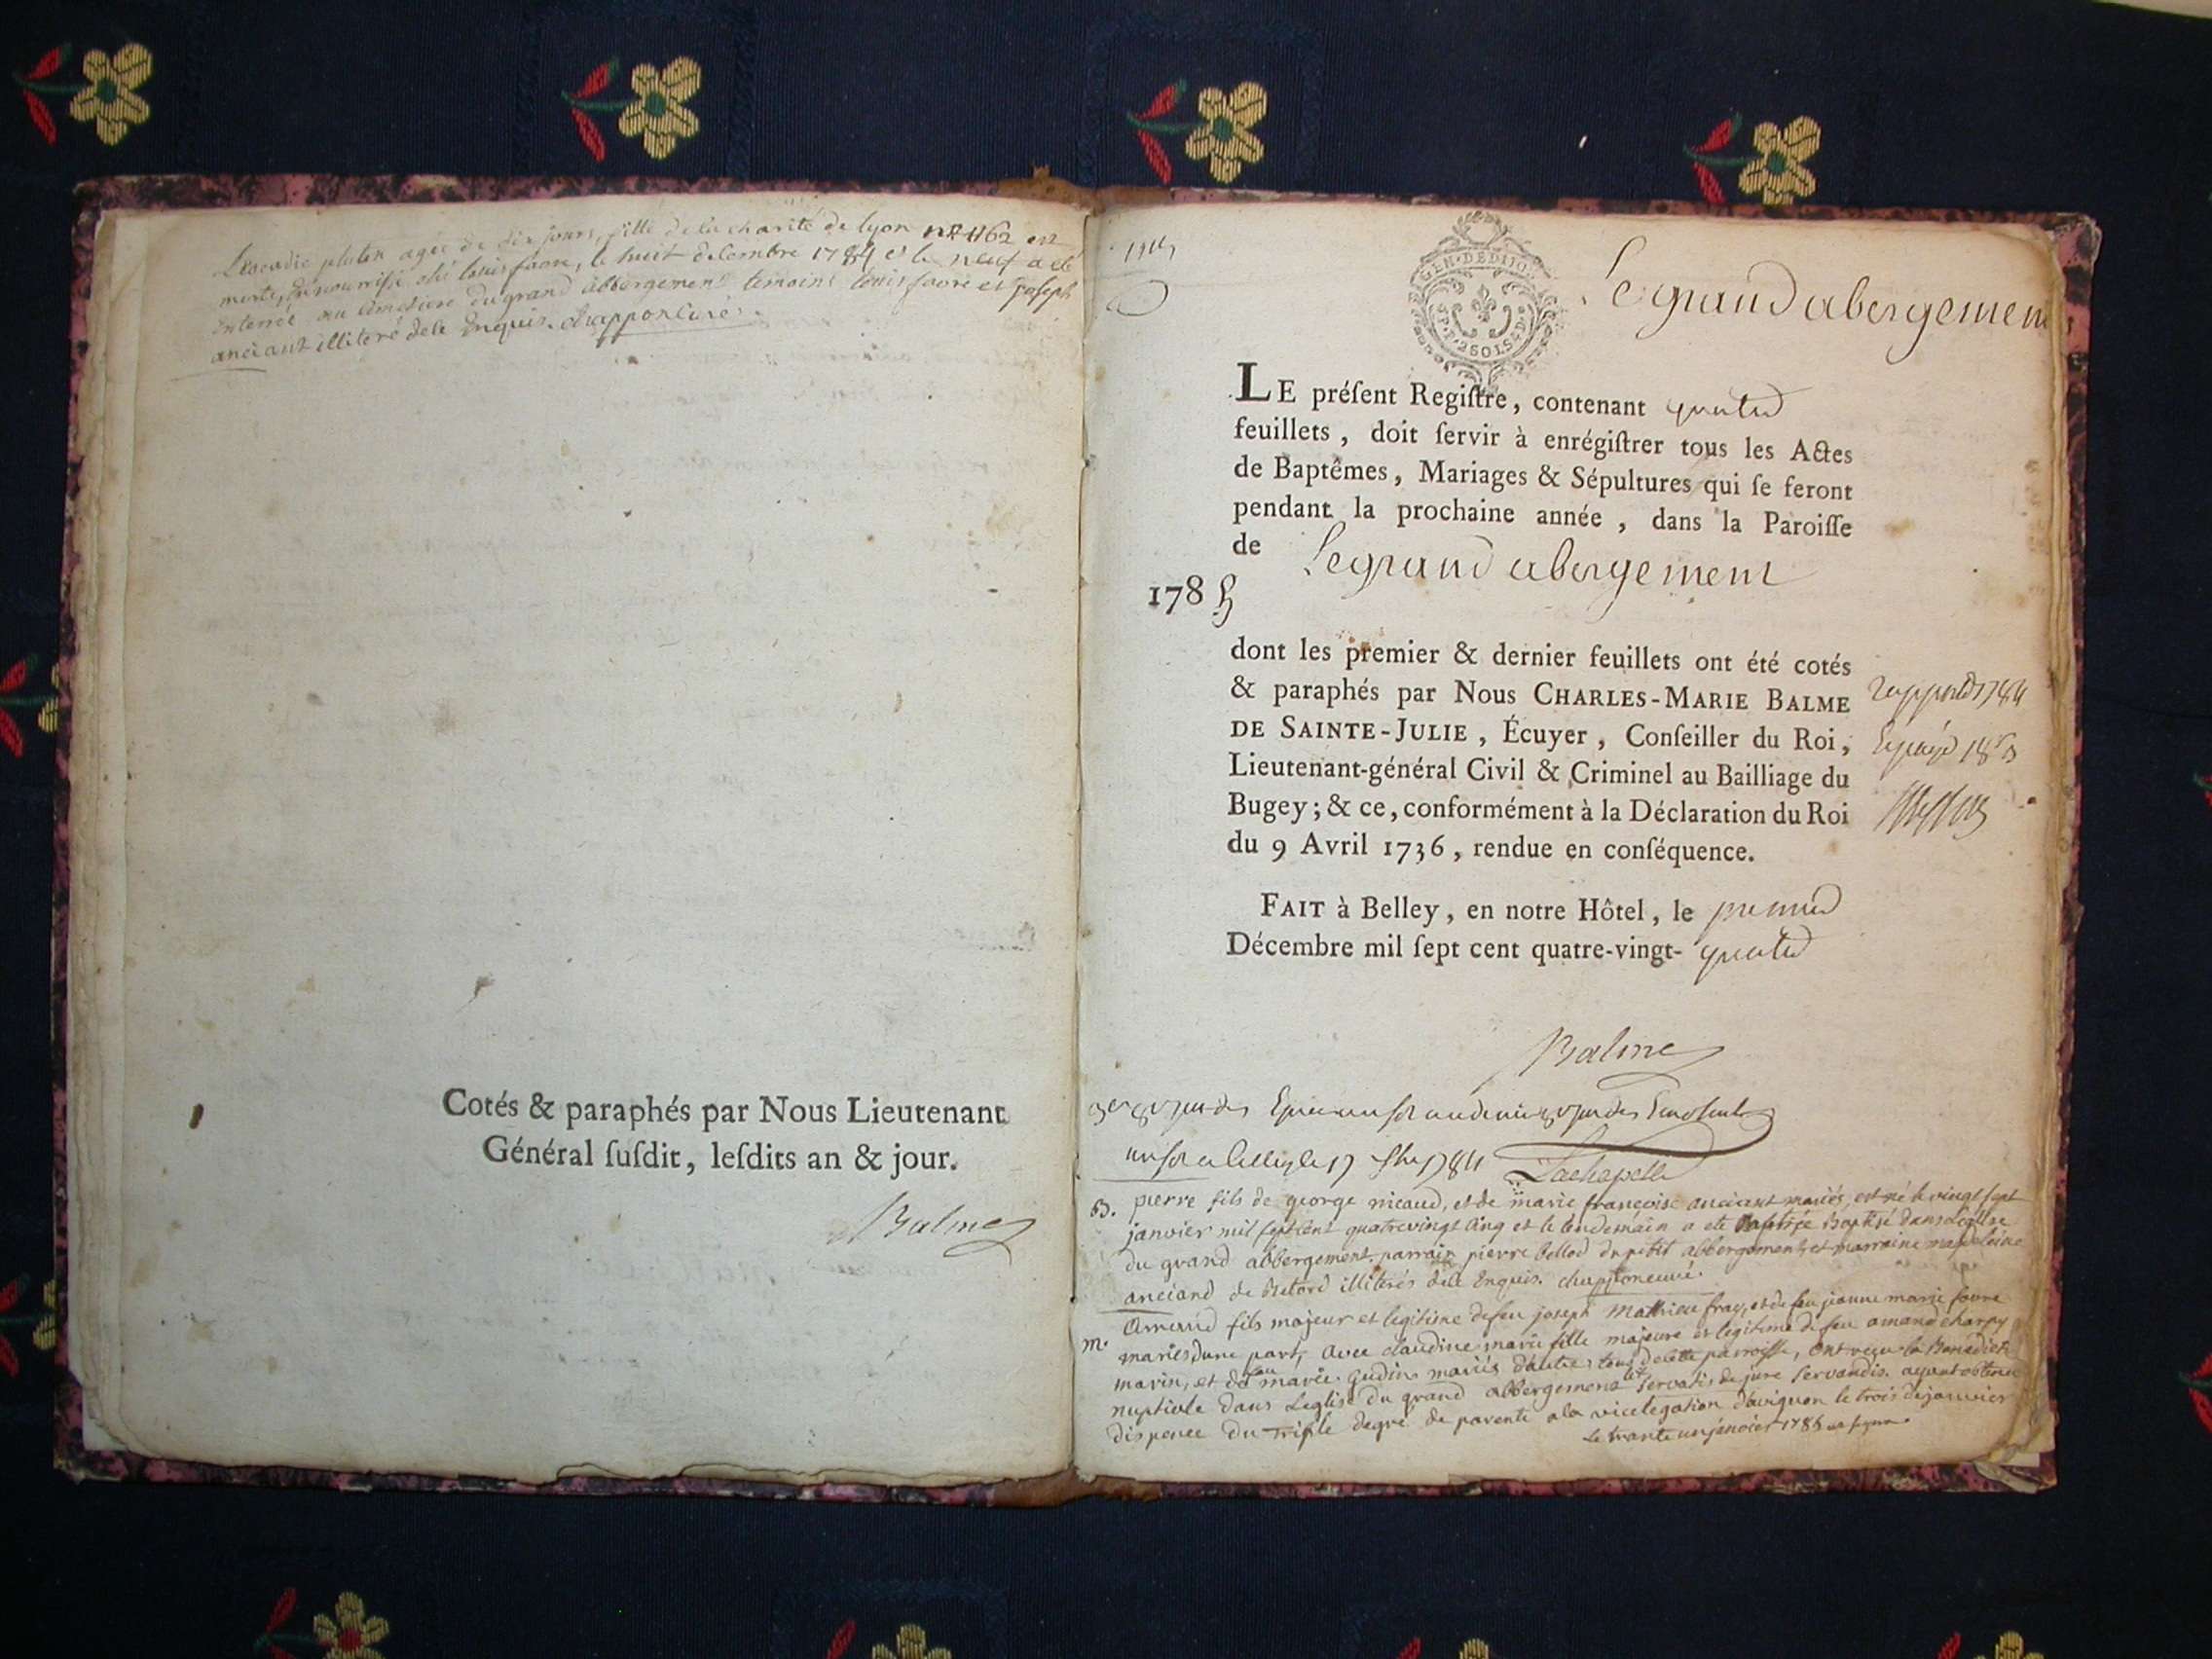 Leocadie pluten agée de dix jours, fille de la charité de lyon nº 1162 est
morte, en nourrisse ché louis favre, le huit decembre 1784 et le neuf a eté
Enterrée au cimetiere du grand abbergement temoins louis favre et joseph
anciant illiteré de le Enquis. chappon curé.
Cotés & paraphés par Nous Lieutenant
Général ſuſdit, leſdits an & jour.
Balme
GEN. DE DIJON
2 SOLS
Le grand abergement
LE préſent Regiſtre, contenant quatre
feuillets, doit ſervir à enrégiſtrer tous les Actes
de Baptêmes, Mariages & Sépultures qui ſe feront
pendant la prochaine année, dans la Paroiſſe
de Le grand abergement
1785
dont les premier & dernier feuillets ont été cotés
& paraphés par Nous CHARLES-MARIE BALME
DE SAINTE-JULIE, Écuyer, Conſeiller du Roi,
Lieutenant-général Civil & Criminel au Bailliage du
Bugey; & ce, conformément à la Déclaration du Roi
du 9 Avril 1736, rendue en conſéquence.
FAIT à Belley, en notre Hôtel, le premier
Décembre mil ſept cent quatre-vingt-quatre
Balme
Lachapelle
B. pierre fils de george nicaud, et de marie françoise anciant mariés, est né le vingt sept
janvier mil sept cent quatrevingt cinq et le lendemain a eté Baptisé dans l'eglise
du grand abbergement. parrain pierre bellod du petit abbergement, et marraine madeleine
anciand de Retord illiterés de le Enquis. chappon curé.
m. Amand fils majeur et legitime de feu joseph Mathieu fray, et de feu jeanne marie favre
mariés d'une part, avec claudine marie fille majeure et legitime de feu amand charpy
marin, et de feu marie Gudin mariés d'autre, tous de cette parroisse, ont reçu la Benedict
nuptiale dans l'eglise du grand abbergement servatis de jure servandis. ayant obtenu
dispence du triple degré de parenté a la vicelegation d'avignon le trois de janvier
Le trante un janvier 1785